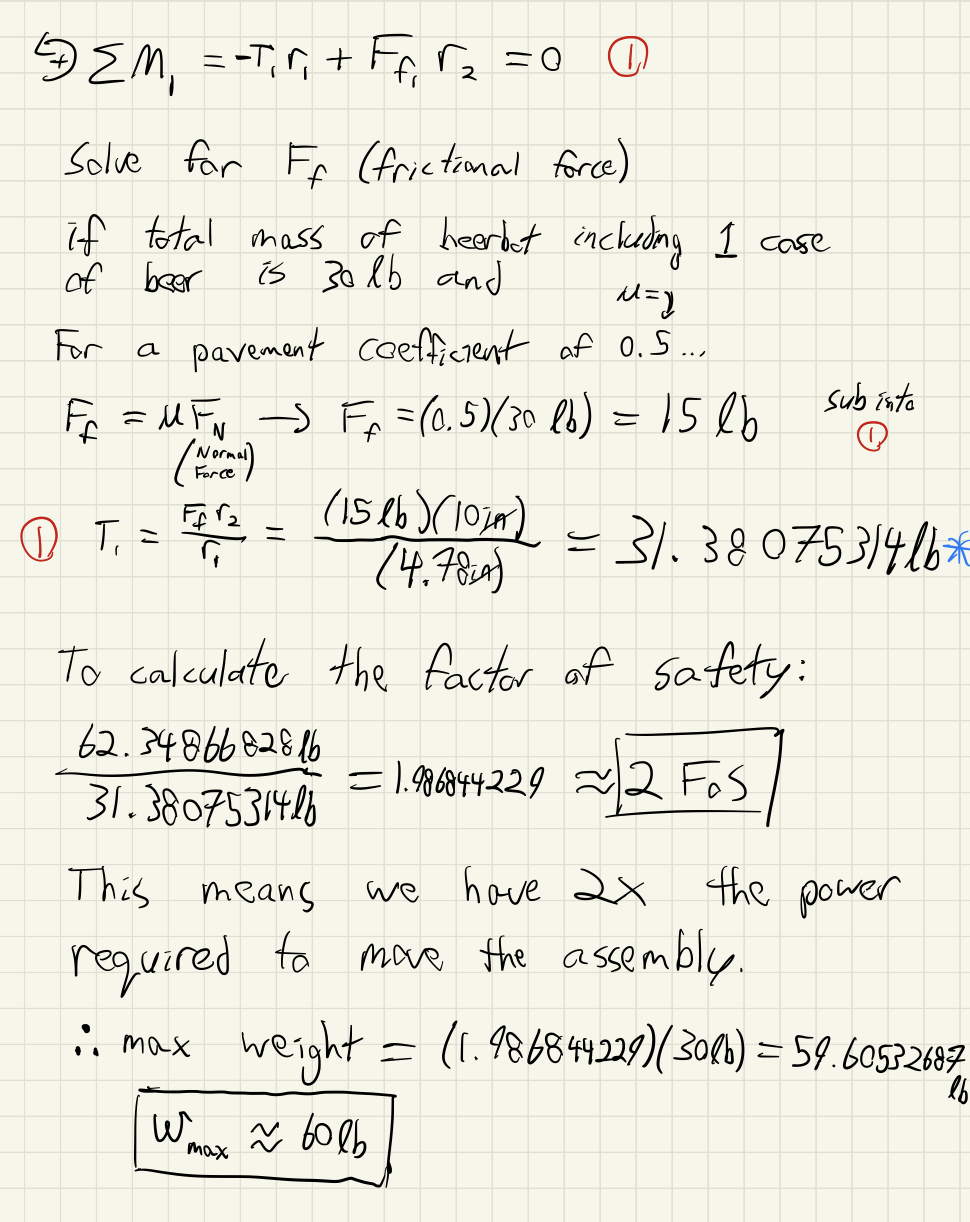 ↺+ ΣM₁ = -T₁r₁ + F_f₁ r₂ = 0 ①
Solve for F_f (frictional force)
if total mass of beerbot including 1 case
of beer is 30 lb and
μ=
For a pavement coefficient of 0.5...
F_f = μF_N → F_f = (0.5)(30 lb) = 15 lb sub into ①
(Normal Force)
① T₁ = F_f r₂ / r₁ = (15 lb)(10in) / (4.78in) = 31.38075314lb*
To calculate the factor of safety:
62.34866828lb / 31.38075314lb = 1.986844229 ≈ 2 FoS
This means we have 2x the power
required to move the assembly.
∴ max weight = (1.986844229)(30lb) = 59.60532687 lb
W_max ≈ 60lb